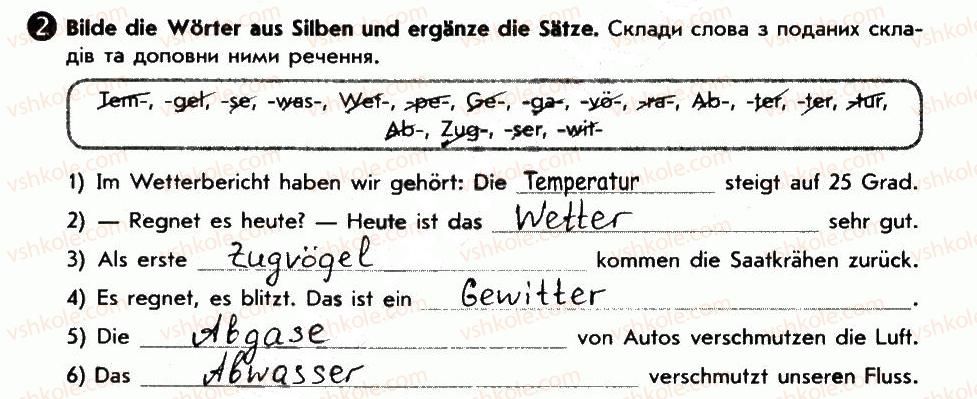 2 Bilde die Wörter aus Silben und ergänze die Sätze. Склади слова з поданих скла-
дів та доповни ними речення.
Tem-, -gel, -se, -was-, Wet-, -pe-, Ge-, -ga-, -vö-, -ra-, Ab-, -ter, -ter, -tur,
Ab-, Zug-, -ser, -wit-
1) Im Wetterbericht haben wir gehört: Die Temperatur steigt auf 25 Grad.
2) — Regnet es heute? — Heute ist das Wetter sehr gut.
3) Als erste Zugvögel kommen die Saatkrähen zurück.
4) Es regnet, es blitzt. Das ist ein Gewitter.
5) Die Abgase von Autos verschmutzen die Luft.
6) Das Abwasser verschmutzt unseren Fluss.